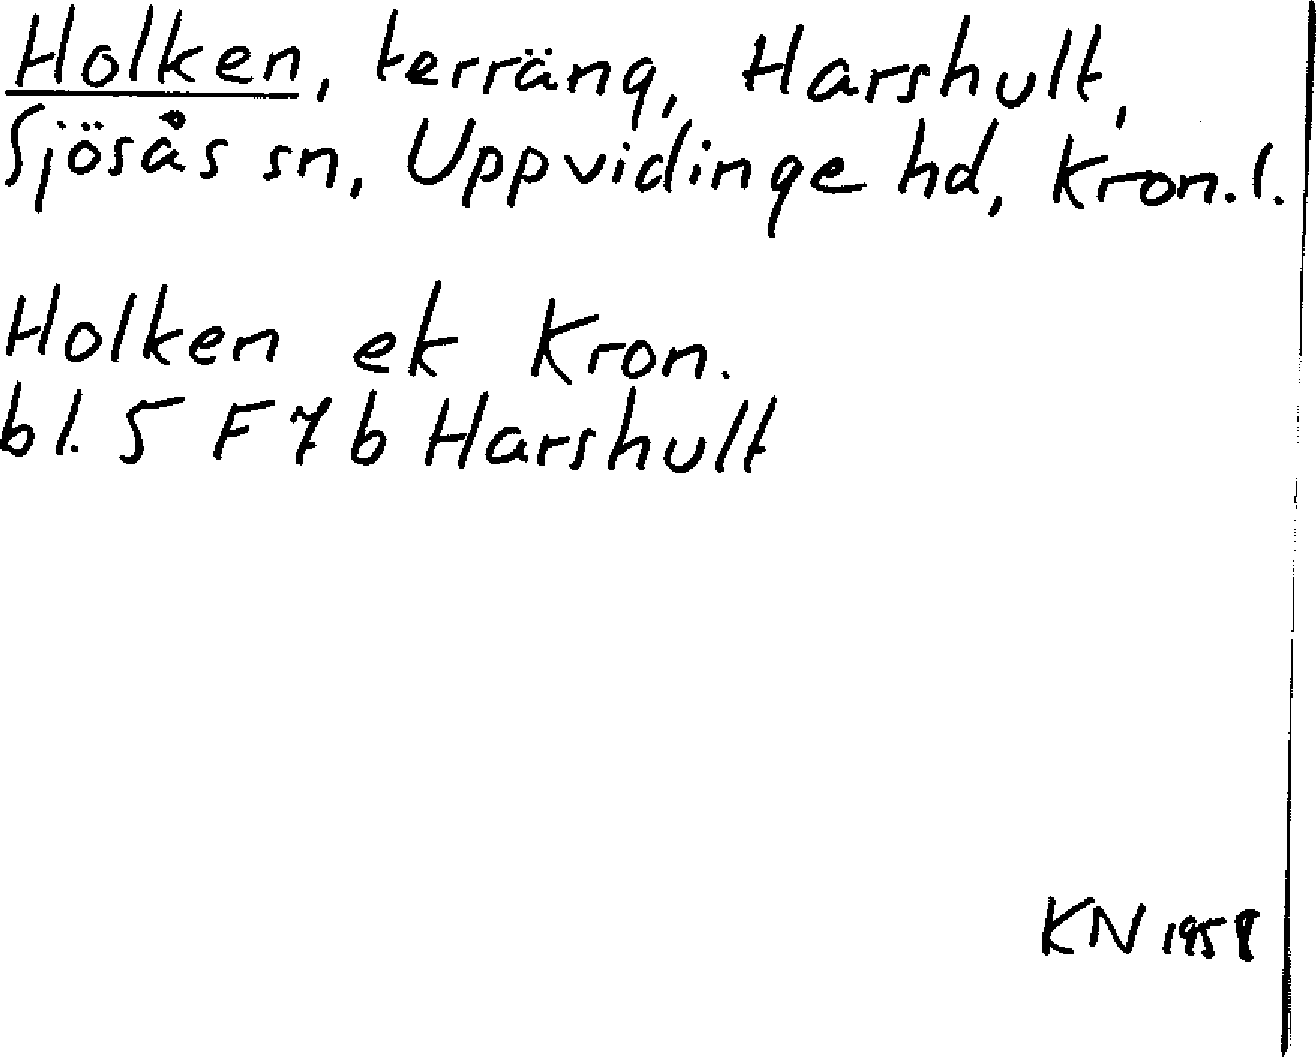 Holken, terräng, Harshult,
Sjösås sn, Uppvidinge hd, Kron.l.
Holken ek Kron.
bl. 5 F 7 b Harshult
KN 1958